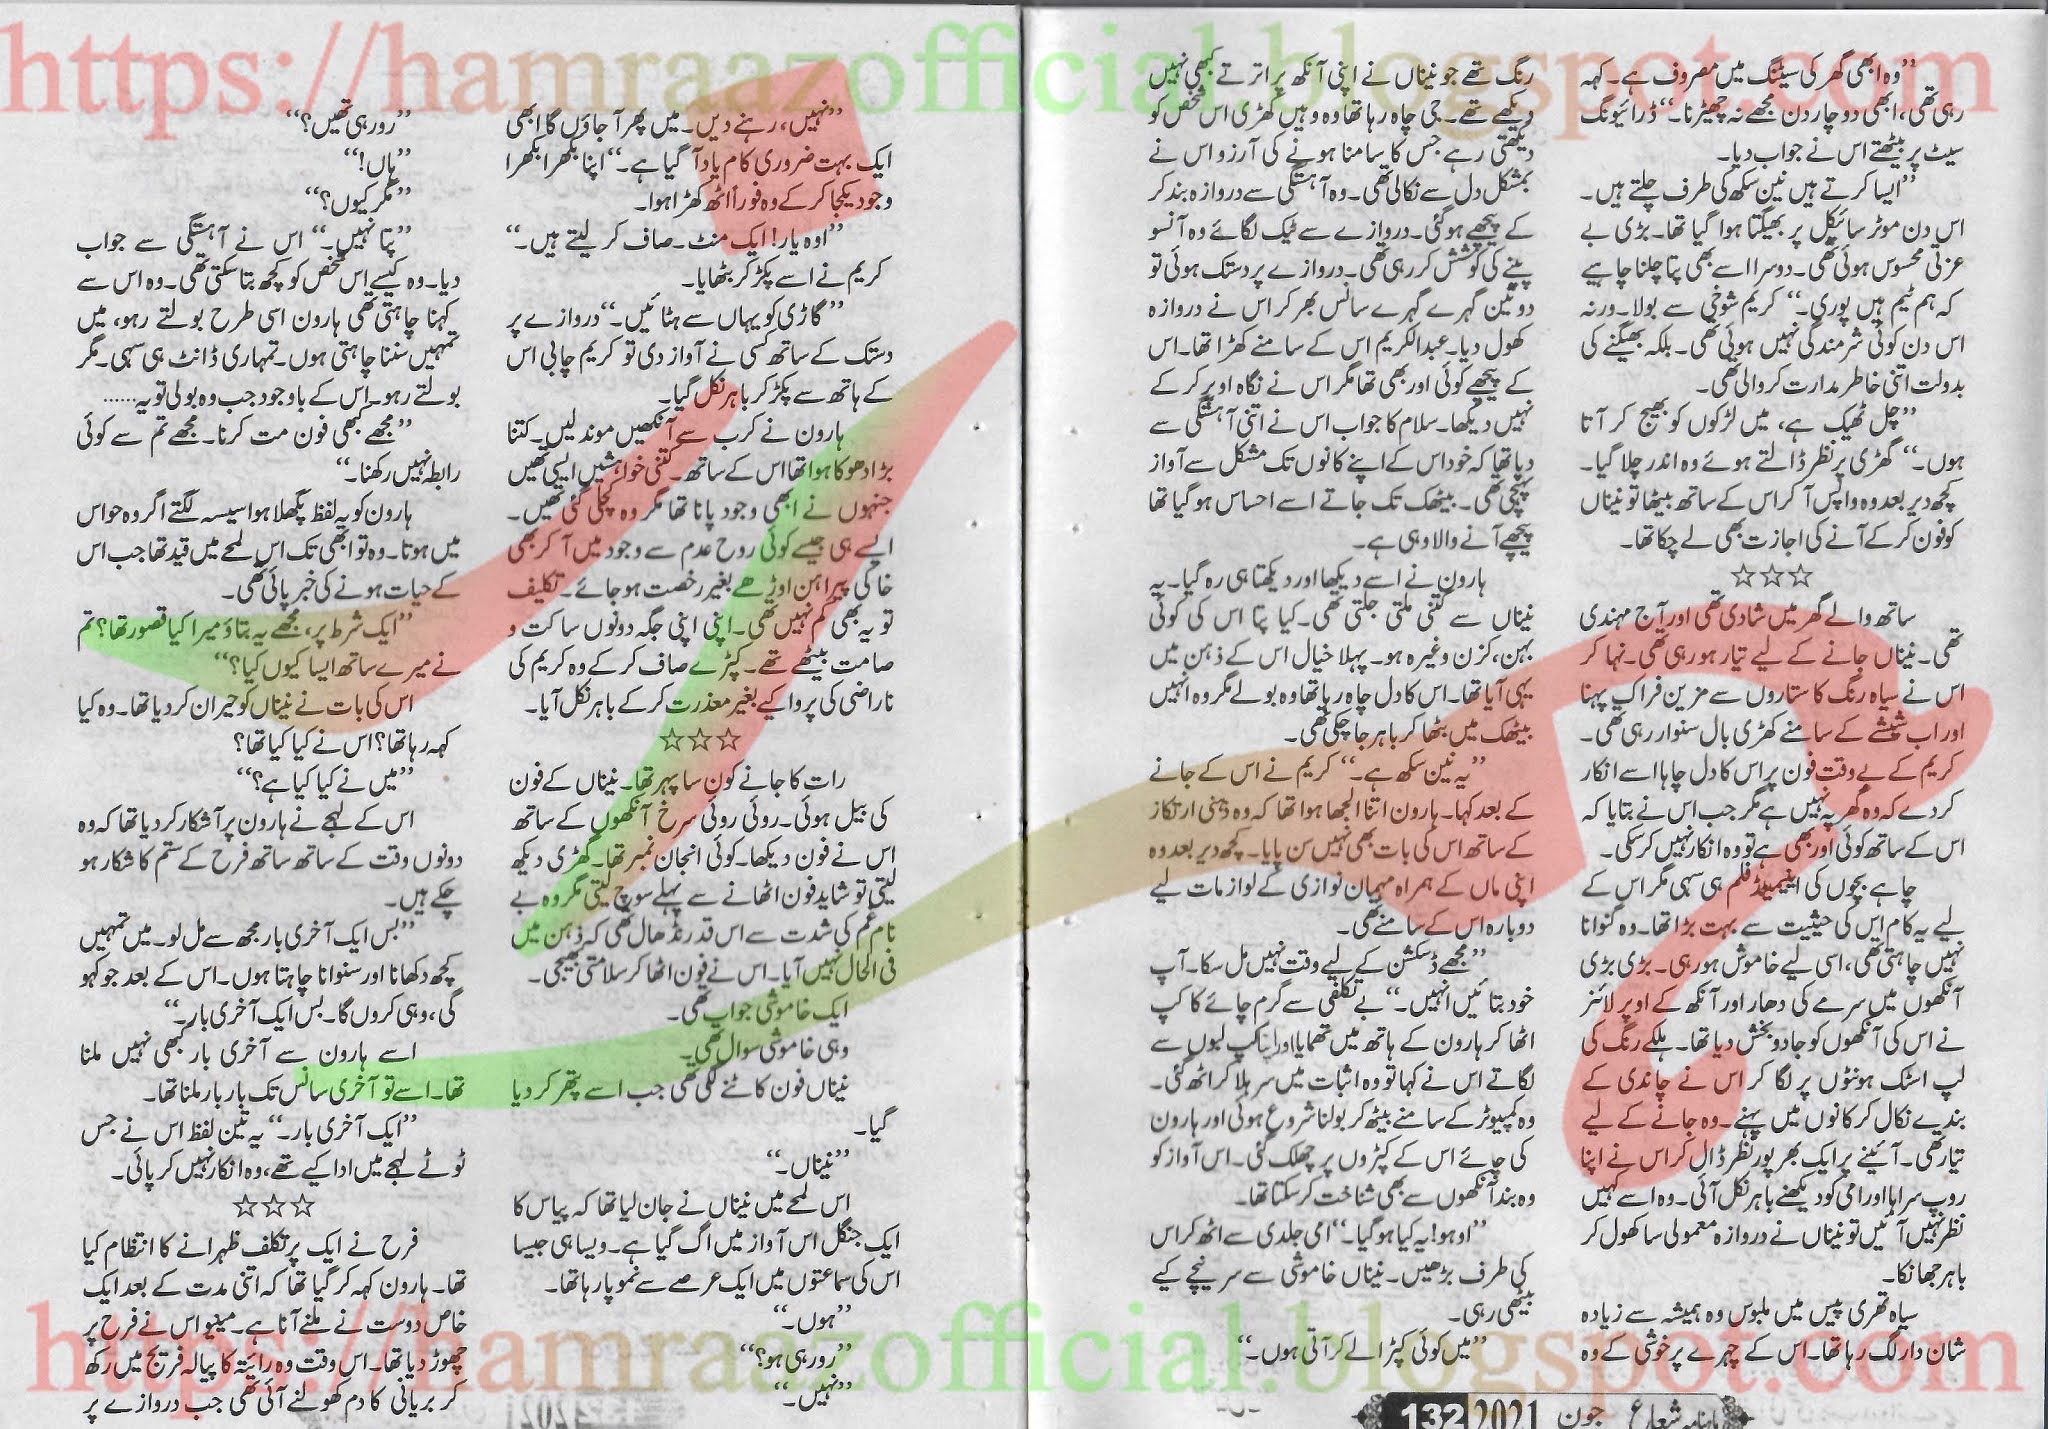 https://hamraazofficial.blogspot.com
’’وہ ابھی گھر کی سیٹنگ میں مصروف ہے۔ کہہ
رہی تھی، ابھی دو چار دن مجھے نہ چھیڑنا۔‘‘ ڈرائیونگ
سیٹ پر بیٹھتے اس نے جواب دیا۔
’’ایسا کرتے ہیں نین سکھ کی طرف چلتے ہیں۔
اس دن موٹر سائیکل پر بھیگتا ہوا گیا تھا۔ بڑی بے
عزتی محسوس ہوئی تھی۔ دوسرا اسے بھی پتا چلنا چاہیے
کہ ہم ٹیم ہیں پوری۔‘‘ کریم شوخی سے بولا۔ ورنہ
اس دن کوئی شرمندگی نہیں ہوئی تھی۔ بلکہ بھیگنے کی
بدولت اتنی خاطر مدارت کروالی تھی۔
’’چل ٹھیک ہے، میں لڑکوں کو بھیج کر آتا
ہوں۔‘‘ گھڑی پر نظر ڈالتے ہوئے وہ اندر چلا گیا۔
کچھ دیر بعد وہ واپس آ کر اس کے ساتھ بیٹھا تو نیناں
کو فون کر کے آنے کی اجازت بھی لے چکا تھا۔
☆☆☆
ساتھ والے گھر میں شادی تھی اور آج مہندی
تھی۔ نیناں جانے کے لیے تیار ہو رہی تھی۔ نہا کر
اس نے سیاہ رنگ کا ستاروں سے مزین فراک پہنا
اور اب شیشے کے سامنے کھڑی بال سنوار رہی تھی۔
کریم کے بے وقت فون پر اس کا دل چاہا اسے انکار
کر دے کہ وہ گھر پہ نہیں ہے مگر جب اس نے بتایا کہ
اس کے ساتھ کوئی اور بھی ہے تو وہ انکار نہیں کر سکی۔
چاہے بچوں کی اینیمیٹڈ فلم ہی سہی مگر اس کے
لیے یہ کام اس کی حیثیت سے بہت بڑا تھا۔ وہ گنوانا
نہیں چاہتی تھی، اسی لیے خاموش ہو رہی۔ بڑی بڑی
آنکھوں میں سرمے کی دھار اور آنکھ کے اوپر لائنر
نے اس کی آنکھوں کو جادو بخش دیا تھا۔ ہلکے رنگ کی
لپ اسٹک ہونٹوں پر لگا کر اس نے چاندی کے
بندے نکال کر کانوں میں پہنے۔ وہ جانے کے لیے
تیار تھی۔ آئینے پر ایک بھرپور نظر ڈال کر اس نے اپنا
روپ سراہا اور امی کو دیکھنے باہر نکل آئی۔ وہ اسے کہیں
نظر نہیں آئیں تو نیناں نے دروازہ معمولی سا کھول کر
باہر جھانکا۔
سیاہ تھری پیس میں ملبوس وہ ہمیشہ سے زیادہ
شان دار لگ رہا تھا۔ اس کے چہرے پر خوشی کے وہ
رنگ تھے جو نیناں نے اپنی آنکھ پر اترتے کبھی نہیں
دیکھے تھے۔ جی چاہ رہا تھا وہ وہیں کھڑی اس شخص کو
دیکھتی رہے جس کا سامنا ہونے کی آرزو اس نے
بمشکل دل سے نکالی تھی۔ وہ آہستگی سے دروازہ بند کر
کے پیچھے ہو گئی۔ دروازے سے ٹیک لگائے وہ آنسو
پینے کی کوشش کر رہی تھی۔ دروازے پر دستک ہوئی تو
دو تین گہرے گہرے سانس بھر کر اس نے دروازہ
کھول دیا۔ عبدالکریم اس کے سامنے کھڑا تھا۔ اس
کے پیچھے کوئی اور بھی تھا مگر اس نے نگاہ اوپر کر کے
نہیں دیکھا۔ سلام کا جواب اس نے اتنی آہستگی سے
دیا تھا کہ خود اس کے اپنے کانوں تک مشکل سے آواز
پہنچی تھی۔ بیٹھک تک جاتے اسے احساس ہو گیا تھا
پیچھے آنے والا وہی ہے۔
ہارون نے اسے دیکھا اور دیکھتا ہی رہ گیا۔ یہ
نیناں سے کتنی ملتی جلتی تھی۔ کیا پتا اس کی کوئی
بہن، کزن وغیرہ ہو۔ پہلا خیال اس کے ذہن میں
یہی آیا تھا۔ اس کا دل چاہ رہا تھا وہ بولے مگر وہ انہیں
بیٹھک میں بٹھا کر باہر جا چکی تھی۔
’’یہ نین سکھ ہے۔‘‘ کریم نے اس کے جانے
کے بعد کہا۔ ہارون اتنا الجھا ہوا تھا کہ وہ ذہنی ارتکاز
کے ساتھ اس کی بات بھی نہیں سن پایا۔ کچھ دیر بعد وہ
اپنی ماں کے ہمراہ مہمان نوازی کے لوازمات لیے
دوبارہ اس کے سامنے تھی۔
’’مجھے ڈسکشن کے لیے وقت نہیں مل سکا۔ آپ
خود بتائیں انہیں۔‘‘ بے تکلفی سے گرم چائے کا کپ
اٹھا کر ہارون کے ہاتھ میں تھمایا اور اپنا کپ لبوں سے
لگاتے اس نے کہا تو وہ اثبات میں سر ہلا کر اٹھ گئی۔
وہ کمپیوٹر کے سامنے بیٹھ کر بولنا شروع ہوئی اور ہارون
کی چائے اس کے کپڑوں پر چھلک گئی۔ اس آواز کو
وہ بند آنکھوں سے بھی شناخت کر سکتا تھا۔
’’اوہو! یہ کیا ہو گیا۔‘‘ امی جلدی سے اٹھ کر اس
کی طرف بڑھیں۔ نیناں خاموشی سے سر نیچے کیے
بیٹھی رہی۔
’’میں کوئی کپڑا لے کر آتی ہوں۔‘‘
ماہنامہ شعاع جون 2021 132
’’نہیں، رہنے دیں۔ میں پھر آ جاؤں گا ابھی
ایک بہت ضروری کام یاد آ گیا ہے۔‘‘ اپنا بکھرا بکھرا
وجود یکجا کر کے وہ فوراً اٹھ کھڑا ہوا۔
’’اوہ یار! ایک منٹ۔ صاف کر لیتے ہیں۔‘‘
کریم نے اسے پکڑ کر بٹھایا۔
’’گاڑی کو یہاں سے ہٹائیں۔‘‘ دروازے پر
دستک کے ساتھ کسی نے آواز دی تو کریم چابی اس
کے ہاتھ سے پکڑ کر باہر نکل گیا۔
ہارون نے کرب سے آنکھیں موند لیں۔ کتنا
بڑا دھوکا ہوا تھا اس کے ساتھ۔ کتنی خواہشیں ایسی تھیں
جنہوں نے ابھی وجود پانا تھا مگر وہ کچلی گئی تھیں۔
ایسے ہی جیسے کوئی روح عدم سے وجود میں آ کر بھی
خاکی پیراہن اوڑھے بغیر رخصت ہو جائے۔ تکلیف
تو یہ بھی کم نہیں تھی۔ اپنی اپنی جگہ دونوں ساکت و
صامت بیٹھے تھے۔ کپڑے صاف کر کے وہ کریم کی
ناراضی کی پروا کیے بغیر معذرت کر کے باہر نکل آیا۔
☆☆☆
رات کا جانے کون سا پہر تھا۔ نیناں کے فون
کی بیل ہوئی۔ روئی روئی سرخ آنکھوں کے ساتھ
اس نے فون دیکھا۔ کوئی انجان نمبر تھا۔ گھڑی دیکھ
لیتی تو شاید فون اٹھانے سے پہلے سوچ لیتی مگر وہ بے
نام غم کی شدت سے اس قدر نڈھال تھی کہ ذہن میں
فی الحال نہیں آیا۔ اس نے فون اٹھا کر سلامتی بھیجی۔
ایک خاموشی جواب تھی۔
وہی خاموشی سوال تھی۔
نیناں فون کاٹنے لگی تھی جب اسے پتھر کر دیا
گیا۔
’’نیناں۔‘‘
اس لمحے میں نیناں نے جان لیا تھا کہ پیاس کا
ایک جنگل اس آواز میں اگ گیا ہے۔ ویسا ہی جیسا
اس کی سماعتوں میں ایک عرصے سے نمو پا رہا تھا۔
’’ہوں۔‘‘
’’رو رہی ہو؟‘‘
’’نہیں۔‘‘
’’رو رہی تھیں؟‘‘
’’ہاں!‘‘
’’مگر کیوں؟‘‘
’’پتا نہیں۔‘‘ اس نے آہستگی سے جواب
دیا۔ وہ کیسے اس شخص کو کچھ بتا سکتی تھی۔ وہ اس سے
کہنا چاہتی تھی ہارون اسی طرح بولتے رہو، میں
تمہیں سننا چاہتی ہوں۔ تمہاری ڈانٹ ہی سہی۔ مگر
بولتے رہو۔ اس کے باوجود جب وہ بولی تو یہ......
’’مجھے کبھی فون مت کرنا۔ مجھے تم سے کوئی
رابطہ نہیں رکھنا۔‘‘
ہارون کو یہ لفظ پگھلا ہوا سیسہ لگتے اگر وہ حواس
میں ہوتا۔ وہ تو ابھی تک اس لمحے میں قید تھا جب اس
کے حیات ہونے کی خبر پائی تھی۔
’’ایک شرط پر، مجھے یہ بتاؤ میرا کیا قصور تھا؟ تم
نے میرے ساتھ ایسا کیوں کیا؟‘‘
اس کی بات نے نیناں کو حیران کر دیا تھا۔ وہ کیا
کہہ رہا تھا؟ اس نے کیا کیا تھا؟
’’میں نے کیا کیا ہے؟‘‘
اس کے لہجے نے ہارون پر آشکار کر دیا تھا کہ وہ
دونوں وقت کے ساتھ ساتھ فرح کے ستم کا شکار ہو
چکے ہیں۔
’’بس ایک آخری بار مجھ سے مل لو۔ میں تمہیں
کچھ دکھانا اور سنوانا چاہتا ہوں۔ اس کے بعد جو کہو
گی، وہی کروں گا۔ بس ایک آخری بار۔‘‘
اسے ہارون سے آخری بار کبھی نہیں ملنا
تھا۔ اسے تو آخری سانس تک بار بار ملنا تھا۔
’’ایک آخری بار۔‘‘ یہ تین لفظ اس نے جس
ٹوٹے لہجے میں ادا کیے تھے، وہ انکار نہیں کر پائی۔
☆☆☆
فرح نے ایک پر تکلف ظہرانے کا انتظام کیا
تھا۔ ہارون کہہ کر گیا تھا کہ اتنی مدت کے بعد ایک
خاص دوست نے ملنے آنا ہے۔ مینیو اس نے فرح پر
چھوڑ دیا تھا۔ اس وقت وہ رائتہ کا پیالہ فریج میں رکھ
کر بریانی کا دم کھولنے آئی تھی جب دروازے پر
https://hamraazofficial.blogspot.com